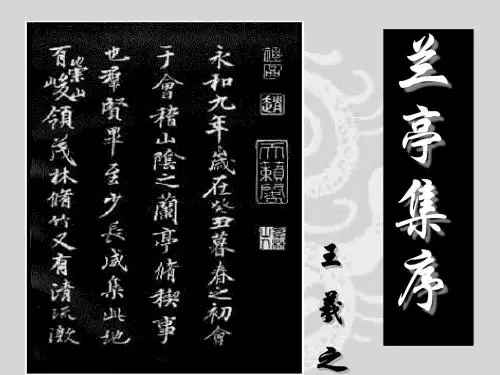 兰亭集序
王羲之
天籟閣
永和九年歲在癸丑暮春之初會
于會稽山陰之蘭亭脩稧事
也羣賢畢至少長咸集此地
有崇山峻領茂林脩竹又有清流激